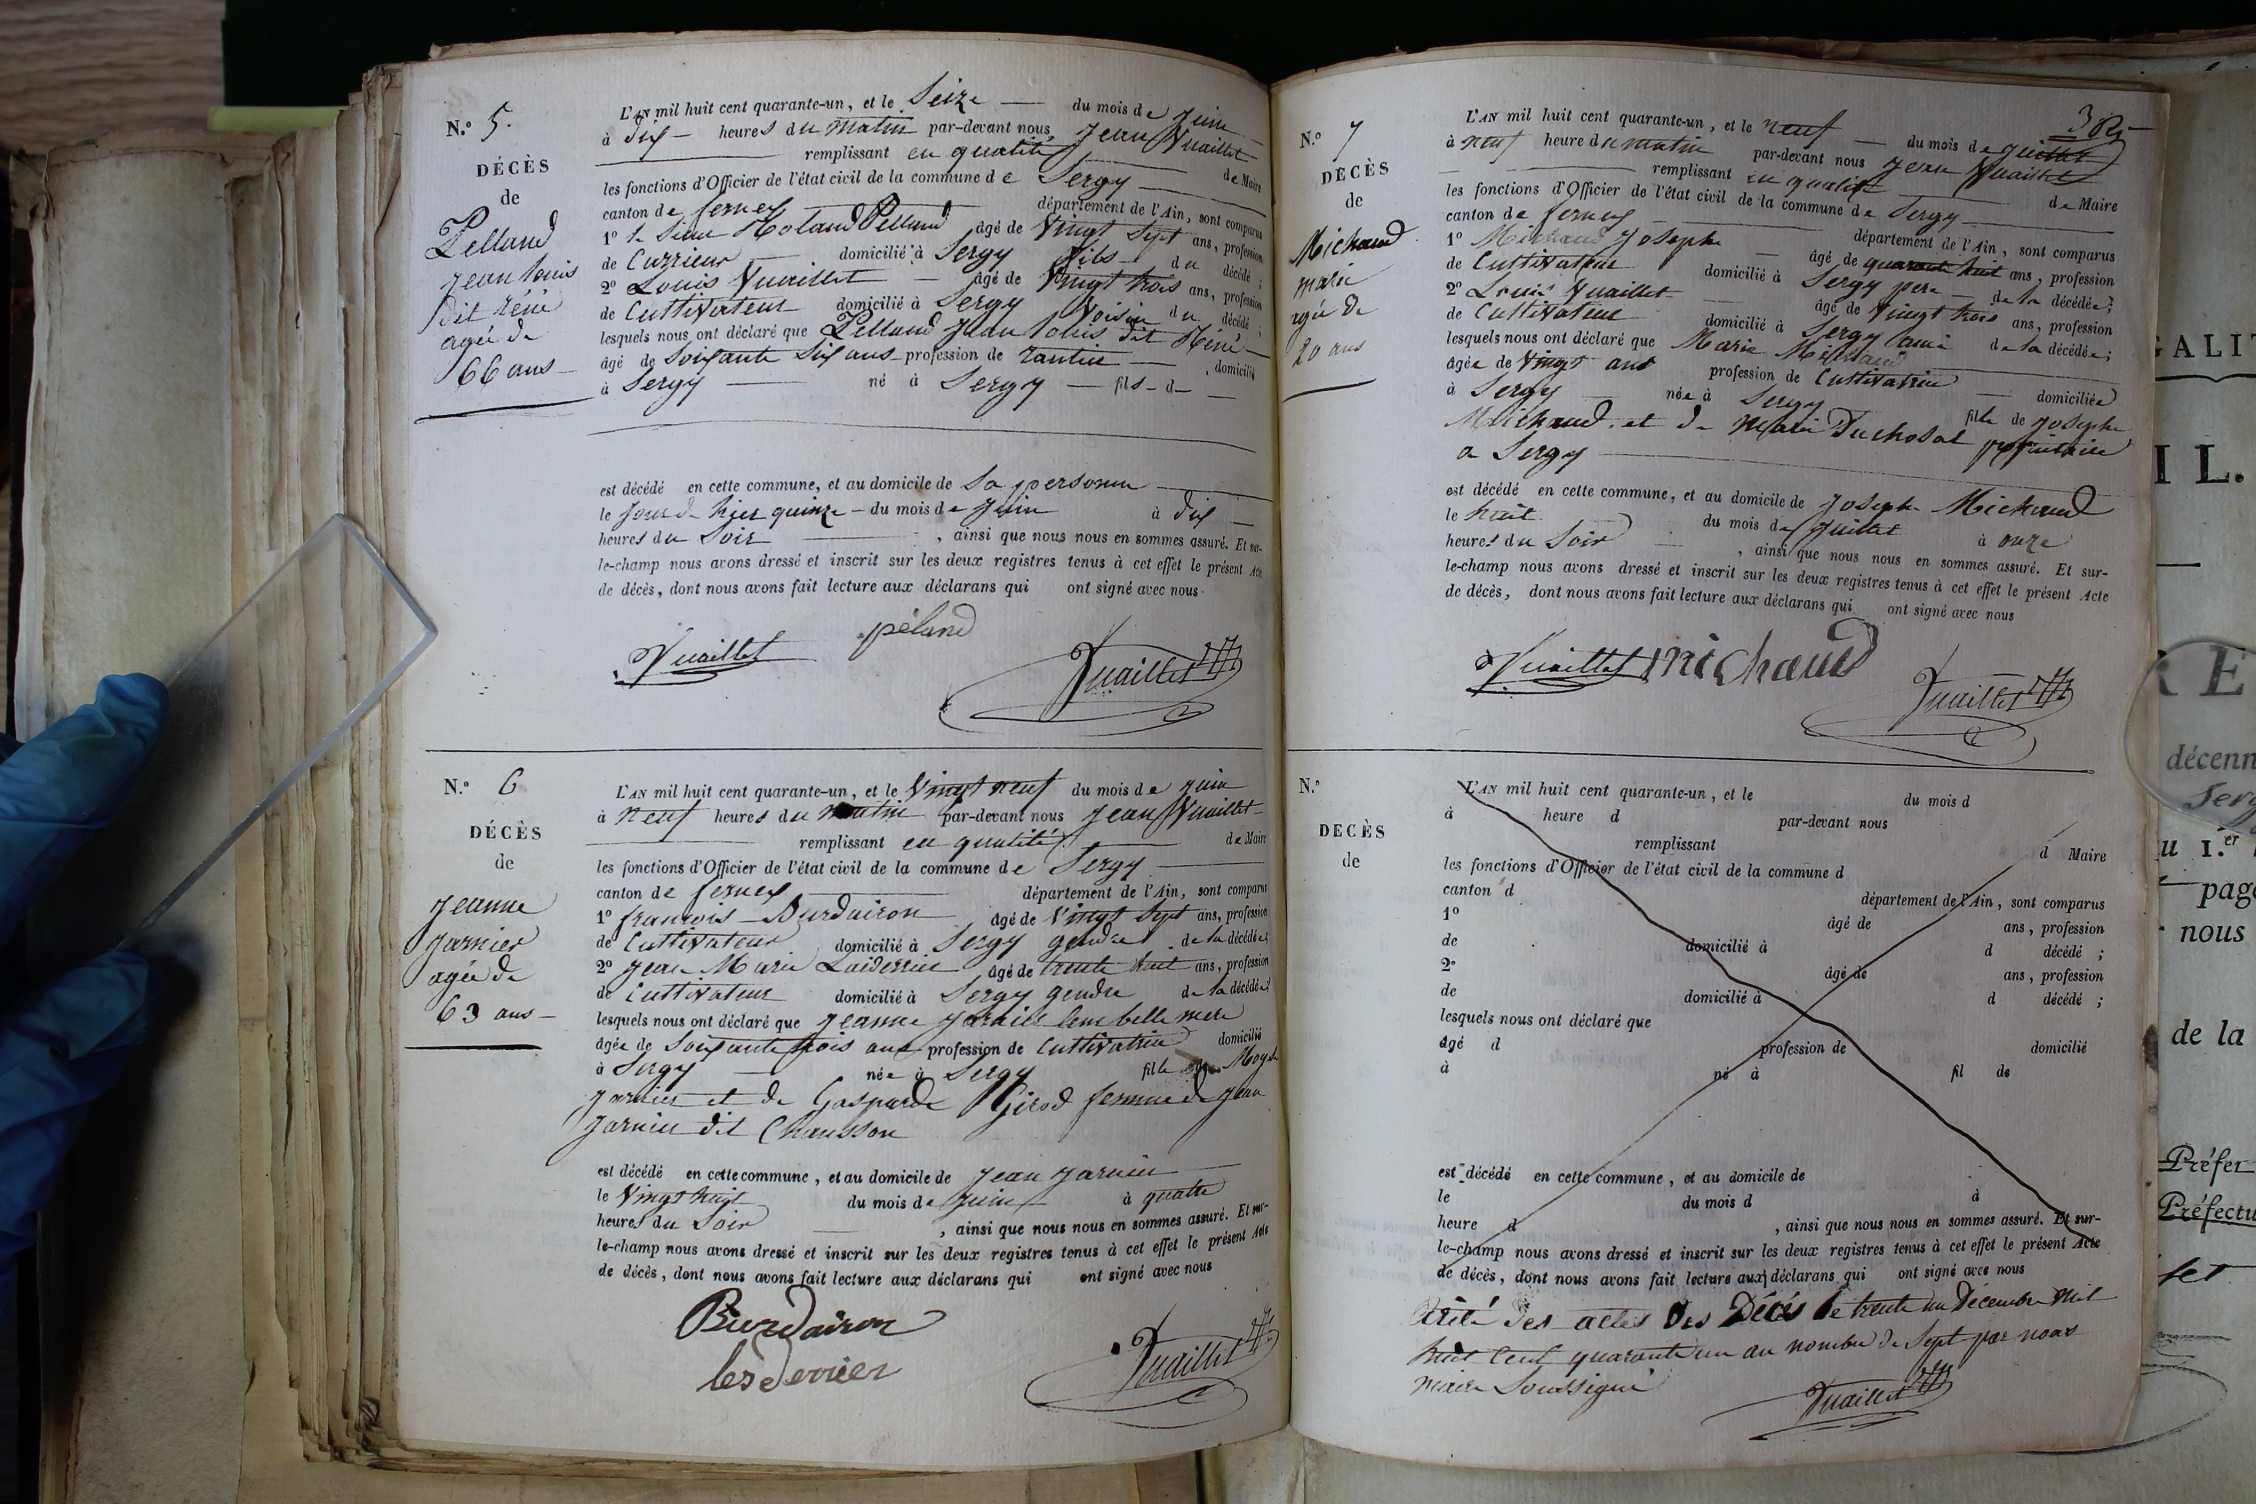 N.º 5.
DÉCÈS
de
Pelland
Jean Louis
dit Réné
agée de
66 ans
L'AN mil huit cent quarante-un, et le Seize du mois de Juin
à dix heures du matin par-devant nous Jean Vuaillet
remplissant en qualité de Maire
les fonctions d'Officier de l'état civil de la commune de Sergy
canton de ferney département de l'Ain, sont comparus
1º le Sieur Roland Pelland âgé de vingt Sept ans, profession
de Currieur domicilié à Sergy fils du décédé ;
2º Louis Vuaillet âgé de vingt trois ans, profession
de Cultivateur domicilié à Sergy Voisin du décédé ;
lesquels nous ont déclaré que Pelland Jean Louis dit Réné
âgé de Soixante Six ans profession de rantier , domicilié
à Sergy né à Sergy fils d
est décédé en cette commune, et au domicile de Sa personne
le jour d'hier quinze du mois de Juin à dix
heures du Soir , ainsi que nous nous en sommes assuré. Et sur-
le-champ nous avons dressé et inscrit sur les deux registres tenus à cet effet le présent Acte
de décès, dont nous avons fait lecture aux déclarans qui ont signé avec nous
Vuaillet péland Vuaillet
N.º 6
DÉCÈS
de
Jeanne
Jarnier
agée de
63 ans
L'AN mil huit cent quarante-un, et le Vingt neuf du mois de juin
à neuf heures du matin par-devant nous Jean Vuaillet
remplissant en qualité de Maire
les fonctions d'Officier de l'état civil de la commune de Sergy
canton de ferney département de l'Ain, sont comparus
1º francois Burdairon âgé de Vingt Sept ans, profession
de Cultivateur domicilié à Sergy gendre de la décédée ;
2º Jean Marie Laiderrier âgé de trente huit ans, profession
de Cultivateur domicilié à Sergy gendre de la décédée ;
lesquels nous ont déclaré que Jeanne Jarnier leur belle mere
âgée de Soixante trois ans profession de Cultivatrice domicilié
à Sergy née à Sergy fille de Moyse
Jarnier et de Gasparde Girod femme de Jean
Jarnier dit Chausson
est décédé en cette commune, et au domicile de Jean Jarnier
le Vingt huit du mois de Juin à quatre
heures du Soir , ainsi que nous nous en sommes assuré. Et sur-
le-champ nous avons dressé et inscrit sur les deux registres tenus à cet effet le présent Acte
de décès, dont nous avons fait lecture aux déclarans qui ont signé avec nous
Burdairon
lesderrier Vuaillet
N.º 7
DÉCÈS
de
Michaud
marie
agée de
20 ans
L'AN mil huit cent quarante-un, et le neuf du mois de Juillet
à neuf heure du matin par-devant nous Jean Vuaillet
remplissant en qualité de Maire
les fonctions d'Officier de l'état civil de la commune de Sergy
canton de ferney département de l'Ain, sont comparus
1º Michaud Josephe âgé de quarante huit ans, profession
de Cultivateur domicilié à Sergy pere de la décédée ;
2º Louis Vuaillet âgé de vingt trois ans, profession
de Cultivateur domicilié à Sergy ami de la décédée ;
lesquels nous ont déclaré que Marie Michaud
âgée de Vingt ans profession de Cultivatrice domiciliée
à Sergy née à Sergy fille de Josephe
Michaud et de Marie Duchosal propriétaires
a Sergy
est décédé en cette commune, et au domicile de Josephe Michaud
le huit du mois de Juillet à onze
heures du Soir , ainsi que nous nous en sommes assuré. Et sur-
le-champ nous avons dressé et inscrit sur les deux registres tenus à cet effet le présent Acte
de décès, dont nous avons fait lecture aux déclarans qui ont signé avec nous
Vuaillet michaud Vuaillet
N.º
DECÈS
de
L'AN mil huit cent quarante-un, et le du mois d
à heure d par-devant nous
remplissant d Maire
les fonctions d'Officier de l'état civil de la commune d
canton d département de l'Ain, sont comparus
1º âgé de ans, profession
de domicilié à d décédé ;
2º âgé de ans, profession
de domicilié à d décédé ;
lesquels nous ont déclaré que
âgé d profession de domicilié
à né à fil de
est décédé en cette commune, et au domicile de
le du mois d à
heure d , ainsi que nous nous en sommes assuré. Et sur-
le-champ nous avons dressé et inscrit sur les deux registres tenus à cet effet le présent Acte
de décès, dont nous avons fait lecture aux déclarans qui ont signé avec nous
des actes des Décés le trente un Décembre mil
huit Cent quarante un au nombre de Sept par nous
maire Soussigné
Vuaillet
GALIT
IL.
RE
décenn
Serg
u 1.er
page
nous
de la
Préfer
Préfectu
fet